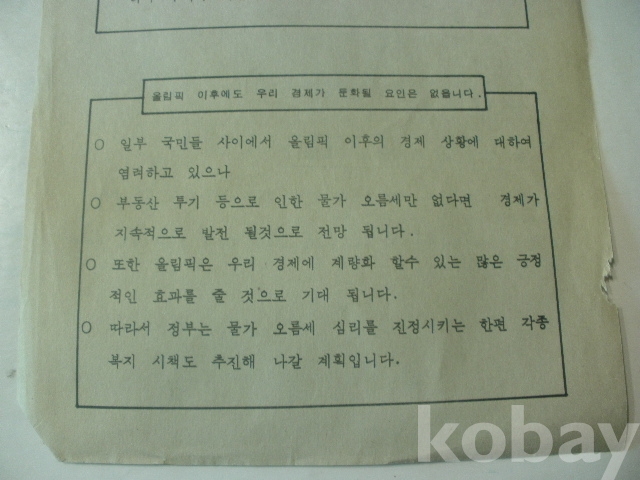 올림픽 이후에도 우리 경제가 둔화될 요인은 없읍니다.
O 일부 국민들 사이에서 올림픽 이후의 경제 상황에 대하여
염려하고 있으나
O 부동산 투기 등으로 인한 물가 오름세만 없다면 경제가
지속적으로 발전 될것으로 전망 됩니다.
O 또한 올림픽은 우리 경제에 계량화 할수 있는 많은 긍정
적인 효과를 줄 것으로 기대 됩니다.
O 따라서 정부는 물가 오름세 심리를 진정시키는 한편 각종
복지 시책도 추진해 나갈 계획입니다.
kobay